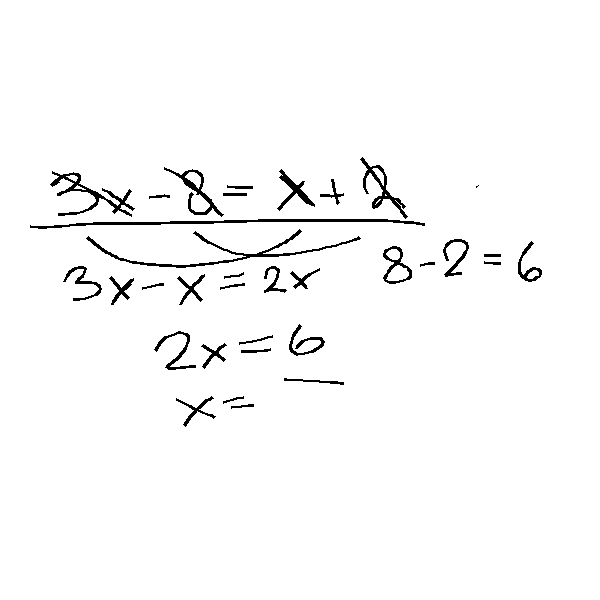 3x - 8 = x + 2
3x - x = 2x
8 - 2 = 6
2x = 6
x =